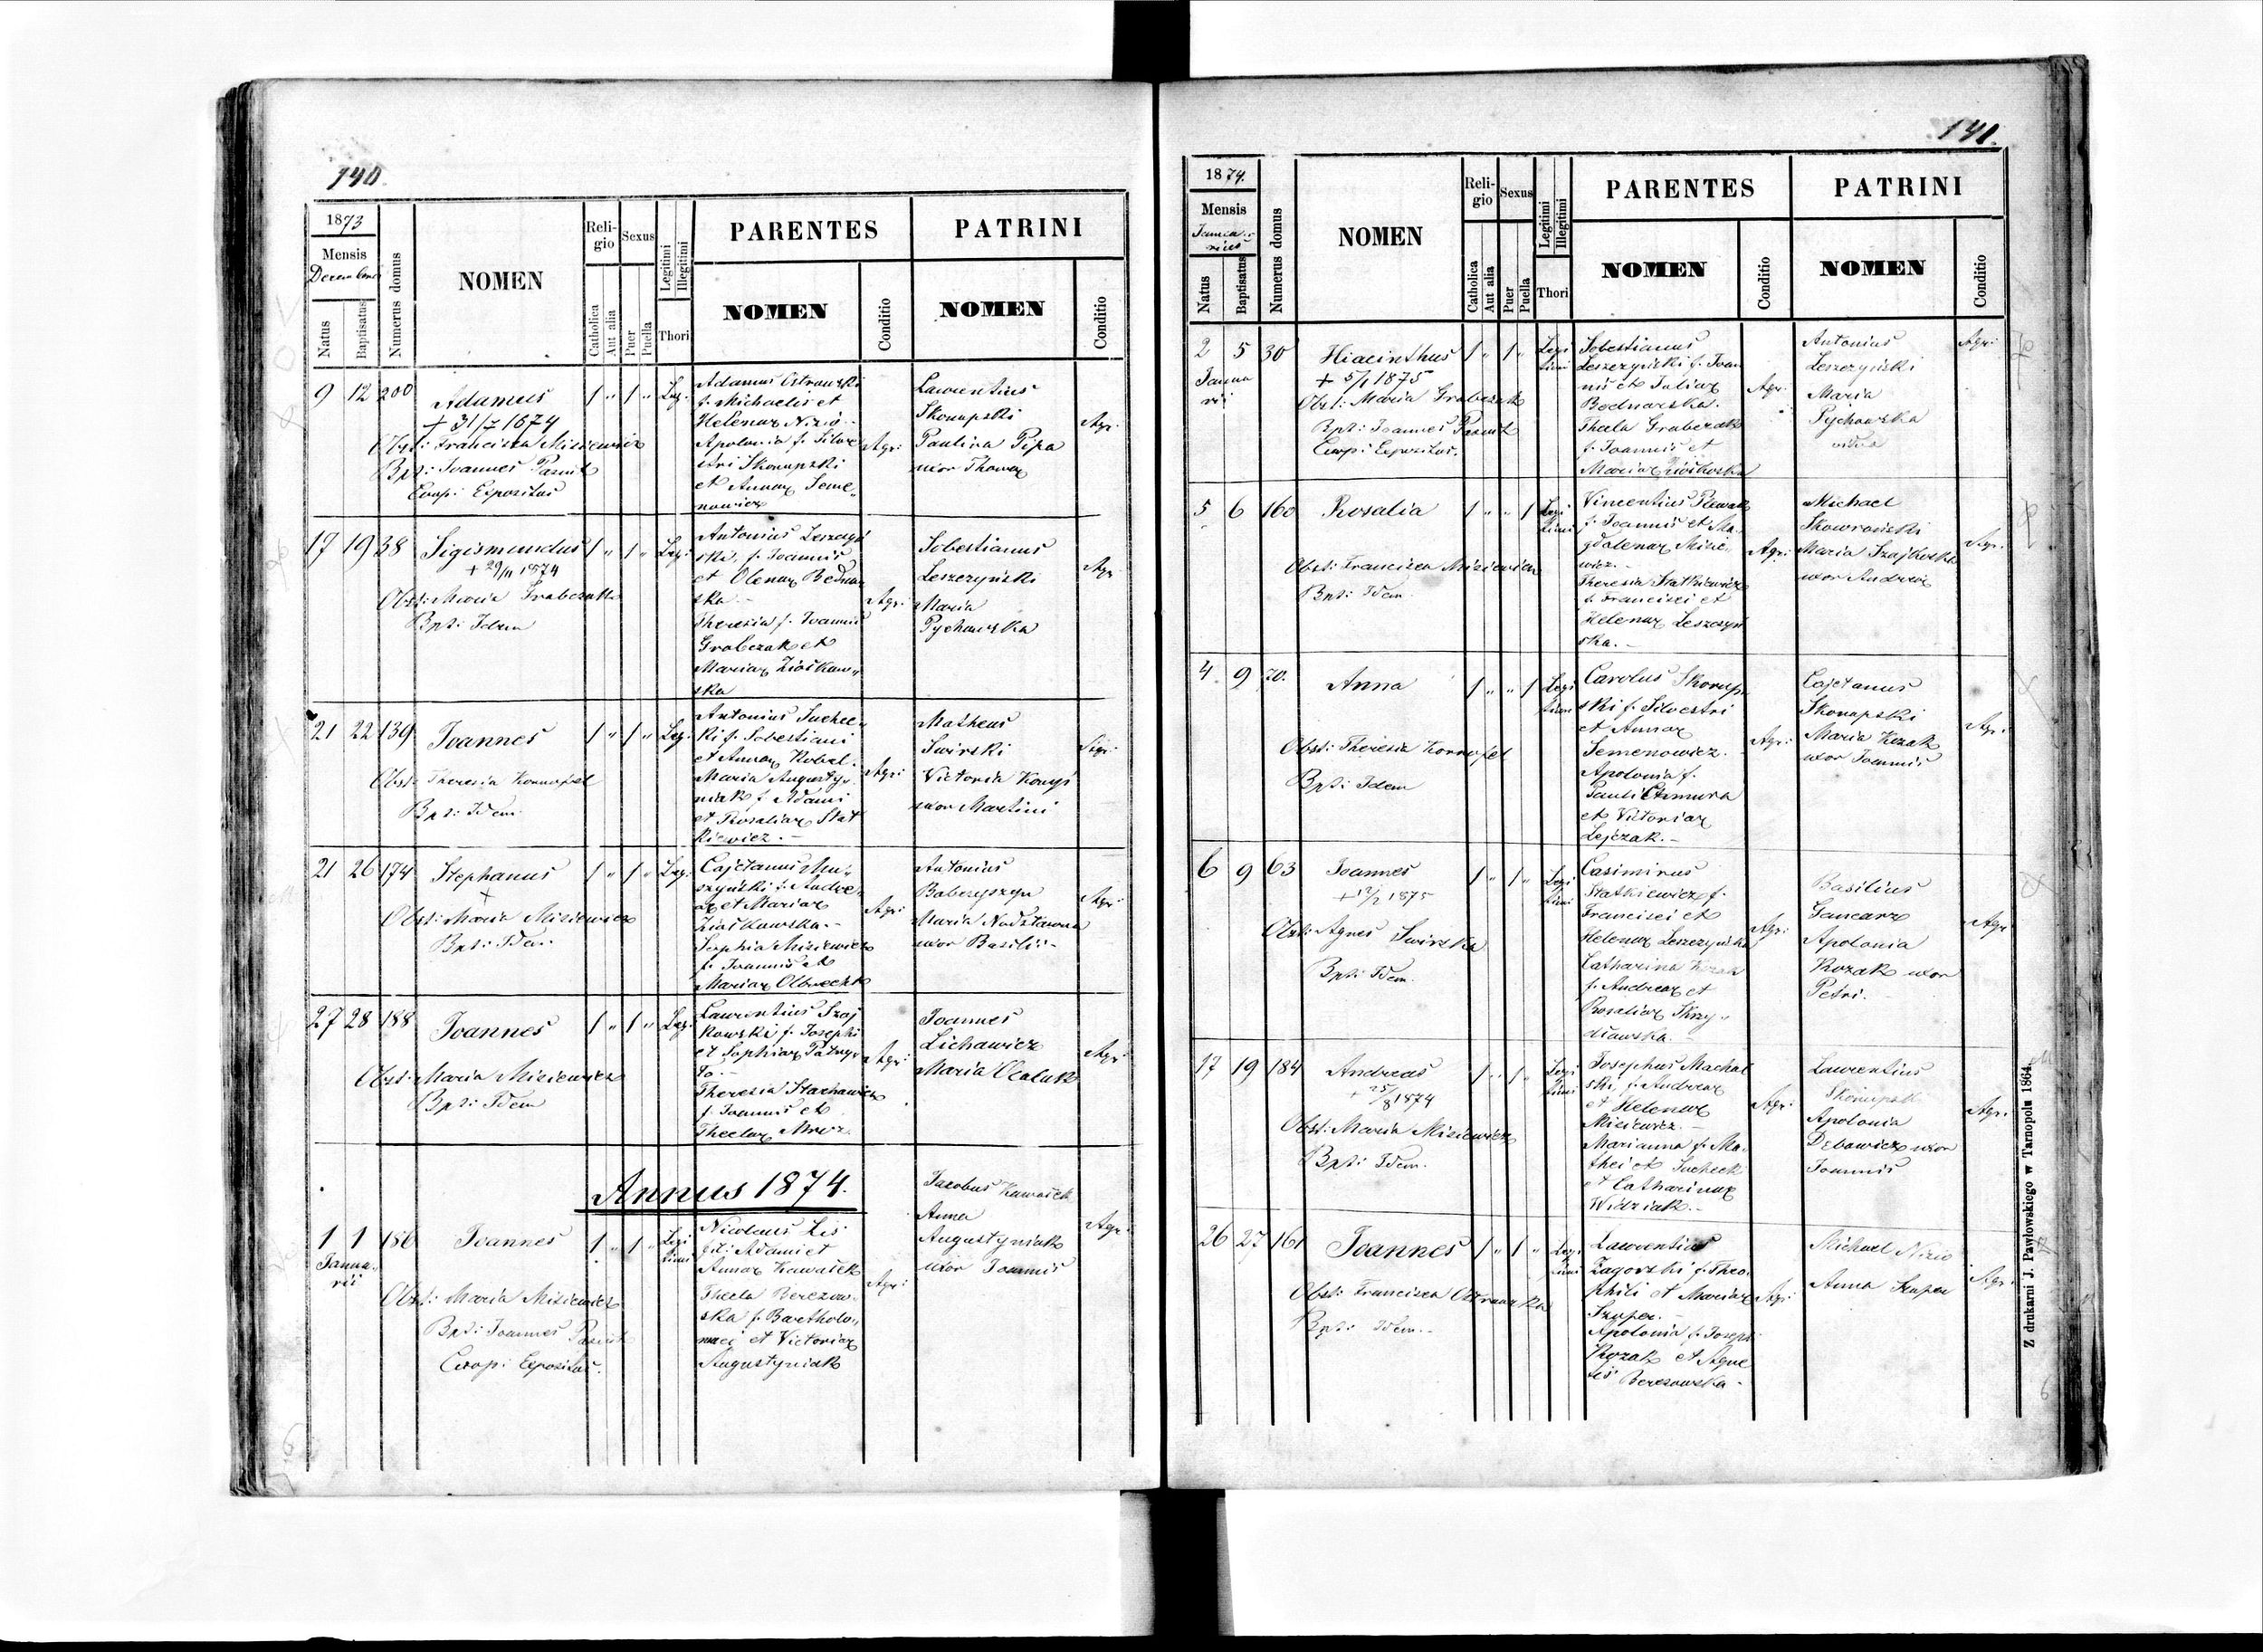 140.
1873
Mensis
Decembris
Natus
Baptisatus
Numerus domus
NOMEN
Religio
Catholica
Aut alia
Sexus
Puer
Puella
Legitimi
Illegitimi
Thori
PARENTES
NOMEN
Conditio
PATRINI
NOMEN
Conditio
9 12 200
Adamus
+ 31/7 1874
Obst: Francisca Misiewicz
Bpt: Joannes Pasiut
Coop: Expositus
1 " 1 " Leg:
Adamus Ostrowski
f. Michaelis et
Helenae Nizio
Apolonia f. Silve-
stri Skorupski
et Annae Seme-
nowicz
Agr:
Laurentius
Skorupski
Paulina Pipa
uxor Thomae
Agr:
17 19 38
Sigismundus
+ 29/11 1874
Obst: Maria Grabczak
Bpt: Idem
1 " 1 " Leg:
Antonius Leszczyń
ski, f. Joannis
et Olenae Bednar
ska.-
Theresia f. Joannis
Grabczak et
Mariae Ziółkow-
ska
Agr:
Sobestianus
Leszczyński
Maria
Pychowska
Agr
21 22 139
Joannes
Obst: Theresia Kornafel
Bpt: Idem
1 " 1 " Leg:
Antonius Suchec-
ki f. Sobestiani
et Annae Kobel.
Maria Augusty-
niak f. Adami
et Rosaliae Stat
kiewicz.-
Agr:
Matheus
Swirski
Victoria
uxor Martini
Agr:
21 26 174
Stephanus
+
Obst: Maria Misiewicz
Bpt: Idem
1 " 1 " Leg:
Cajetanus Mu-
szyński f. Andre-
ae et Mariae
Ziółkowska.-
Sophia Misiewicz
f. Joannis et
Mariae Olbrecht
Agr:
Antonius
Babczyszyn
Maria
uxor Basilii-
Agr:
27 28 188
Joannes
Obst: Maria Misiewicz
Bpt: Idem
1 " 1 " Leg:
Laurentius Szaj
kowski f. Josephi
et Sophiae Patry-
ło.-
Theresia Stachowicz
f. Joannis et
Theclae Mroz.
Agr:
Joannes
Lichowicz
Maria
Agr:
Annus 1874.
1 1 186
Janua-
rii
Joannes
Obst: Maria Misiewicz
Bpt: Joannes Pasiut
Coop: Expositus.
1 " 1 " Legi
timi
Nicolaus Lis
fil: Adami et
Annae Kawałek
Thecla Berezow-
ska f. Bartholo-
maei et Victoriae
Augustyniak
Agr:
Jacobus Kawałek
Anna
Augustyniak
uxor Joannis
Agr:
141.
1874.
Mensis
Janua-
rius
Natus
Baptisatus
Numerus domus
NOMEN
Religio
Catholica
Aut alia
Sexus
Puer
Puella
Legitimi
Illegitimi
Thori
PARENTES
NOMEN
Conditio
PATRINI
NOMEN
Conditio
2 5 30
Janua
rii
Hiacinthus
+ 5/1 1875
Obst: Maria Grabczak
Bpt: Joannes Pasiut
Coop: Expositus.
1 " 1 " Legi
timi
Sobestianus
Leszczyński f. Joan
nis et Juliae
Bednarska.
Thecla Grabczak
f. Joannis et
Mariae Ziółkowska
Agr:
Antonius
Leszczyński
Maria
Pychowska
vidua
Agr:
5 6 160
Rosalia
Obst: Francisca Misiewicz
Bpt: Idem
1 " " 1 Legi
timi
Vincentius
f. Joannis et Ma-
gdalenae Misie-
wicz.-
Theresia Statkiewicz
f. Francisci et
Helenae Leszczyń
ska.-
Agr:
Michael
Skowroński
Maria Szajkowska
uxor Andreae
Agr:
4 9 70.
Anna
Obst: Theresia Kornafel
Bpt: Idem
1 " " 1 Legi
timi
Carolus Skorup-
ski f. Silvestri
et Annae
Semenowicz.
Apolonia f.
Pauli Czemura
et Victoriae
Lejczak.-
Agr:
Cajetanus
Skorupski
Maria Kozak
uxor Joannis
Agr:
6 9 63
Joannes
+ 12/2 1875
Obst: Agnes Swirska
Bpt: Idem
1 " 1 " Legi
timi
Casimirus
Statkiewicz f.
Francisci et
Helenae Leszczyńska
Catharina Kozak
f. Andreae et
Rosaliae Skrzy-
dłowska.
Agr:
Basilius
Gancarz
Apolonia
Kozak uxor
Petri.
Agr
17 19 184
Andreas
+ 25/8 1874
Obst: Maria Misiewicz
Bpt: Idem.
1 " 1 " Legi
timi
Josephus Machal
ski, f. Andreae
et Helenae
Misiewicz.-
Marianna f. Ma-
thei et Sucheck
et Catharinae
Widziak.-
Agr:
Laurentius
Skorupski
Apolonia
Dębowicz uxor
Joannis
Agr.
26 27 161
Joannes
Obst: Francisca Ostrowska
Bpt: Idem.-
1 " 1 " Legi
timi
Laurentius
Zagorski f. Theo-
phili et Mariae
Szuper.-
Apolonia f. Joseph
Kozak et Agne
tis Berezowska-
Agr:
Michael Nizio
Anna Szuper
Agr.
Z drukarni J. Pawłowskiego w Tarnopolu 1864.